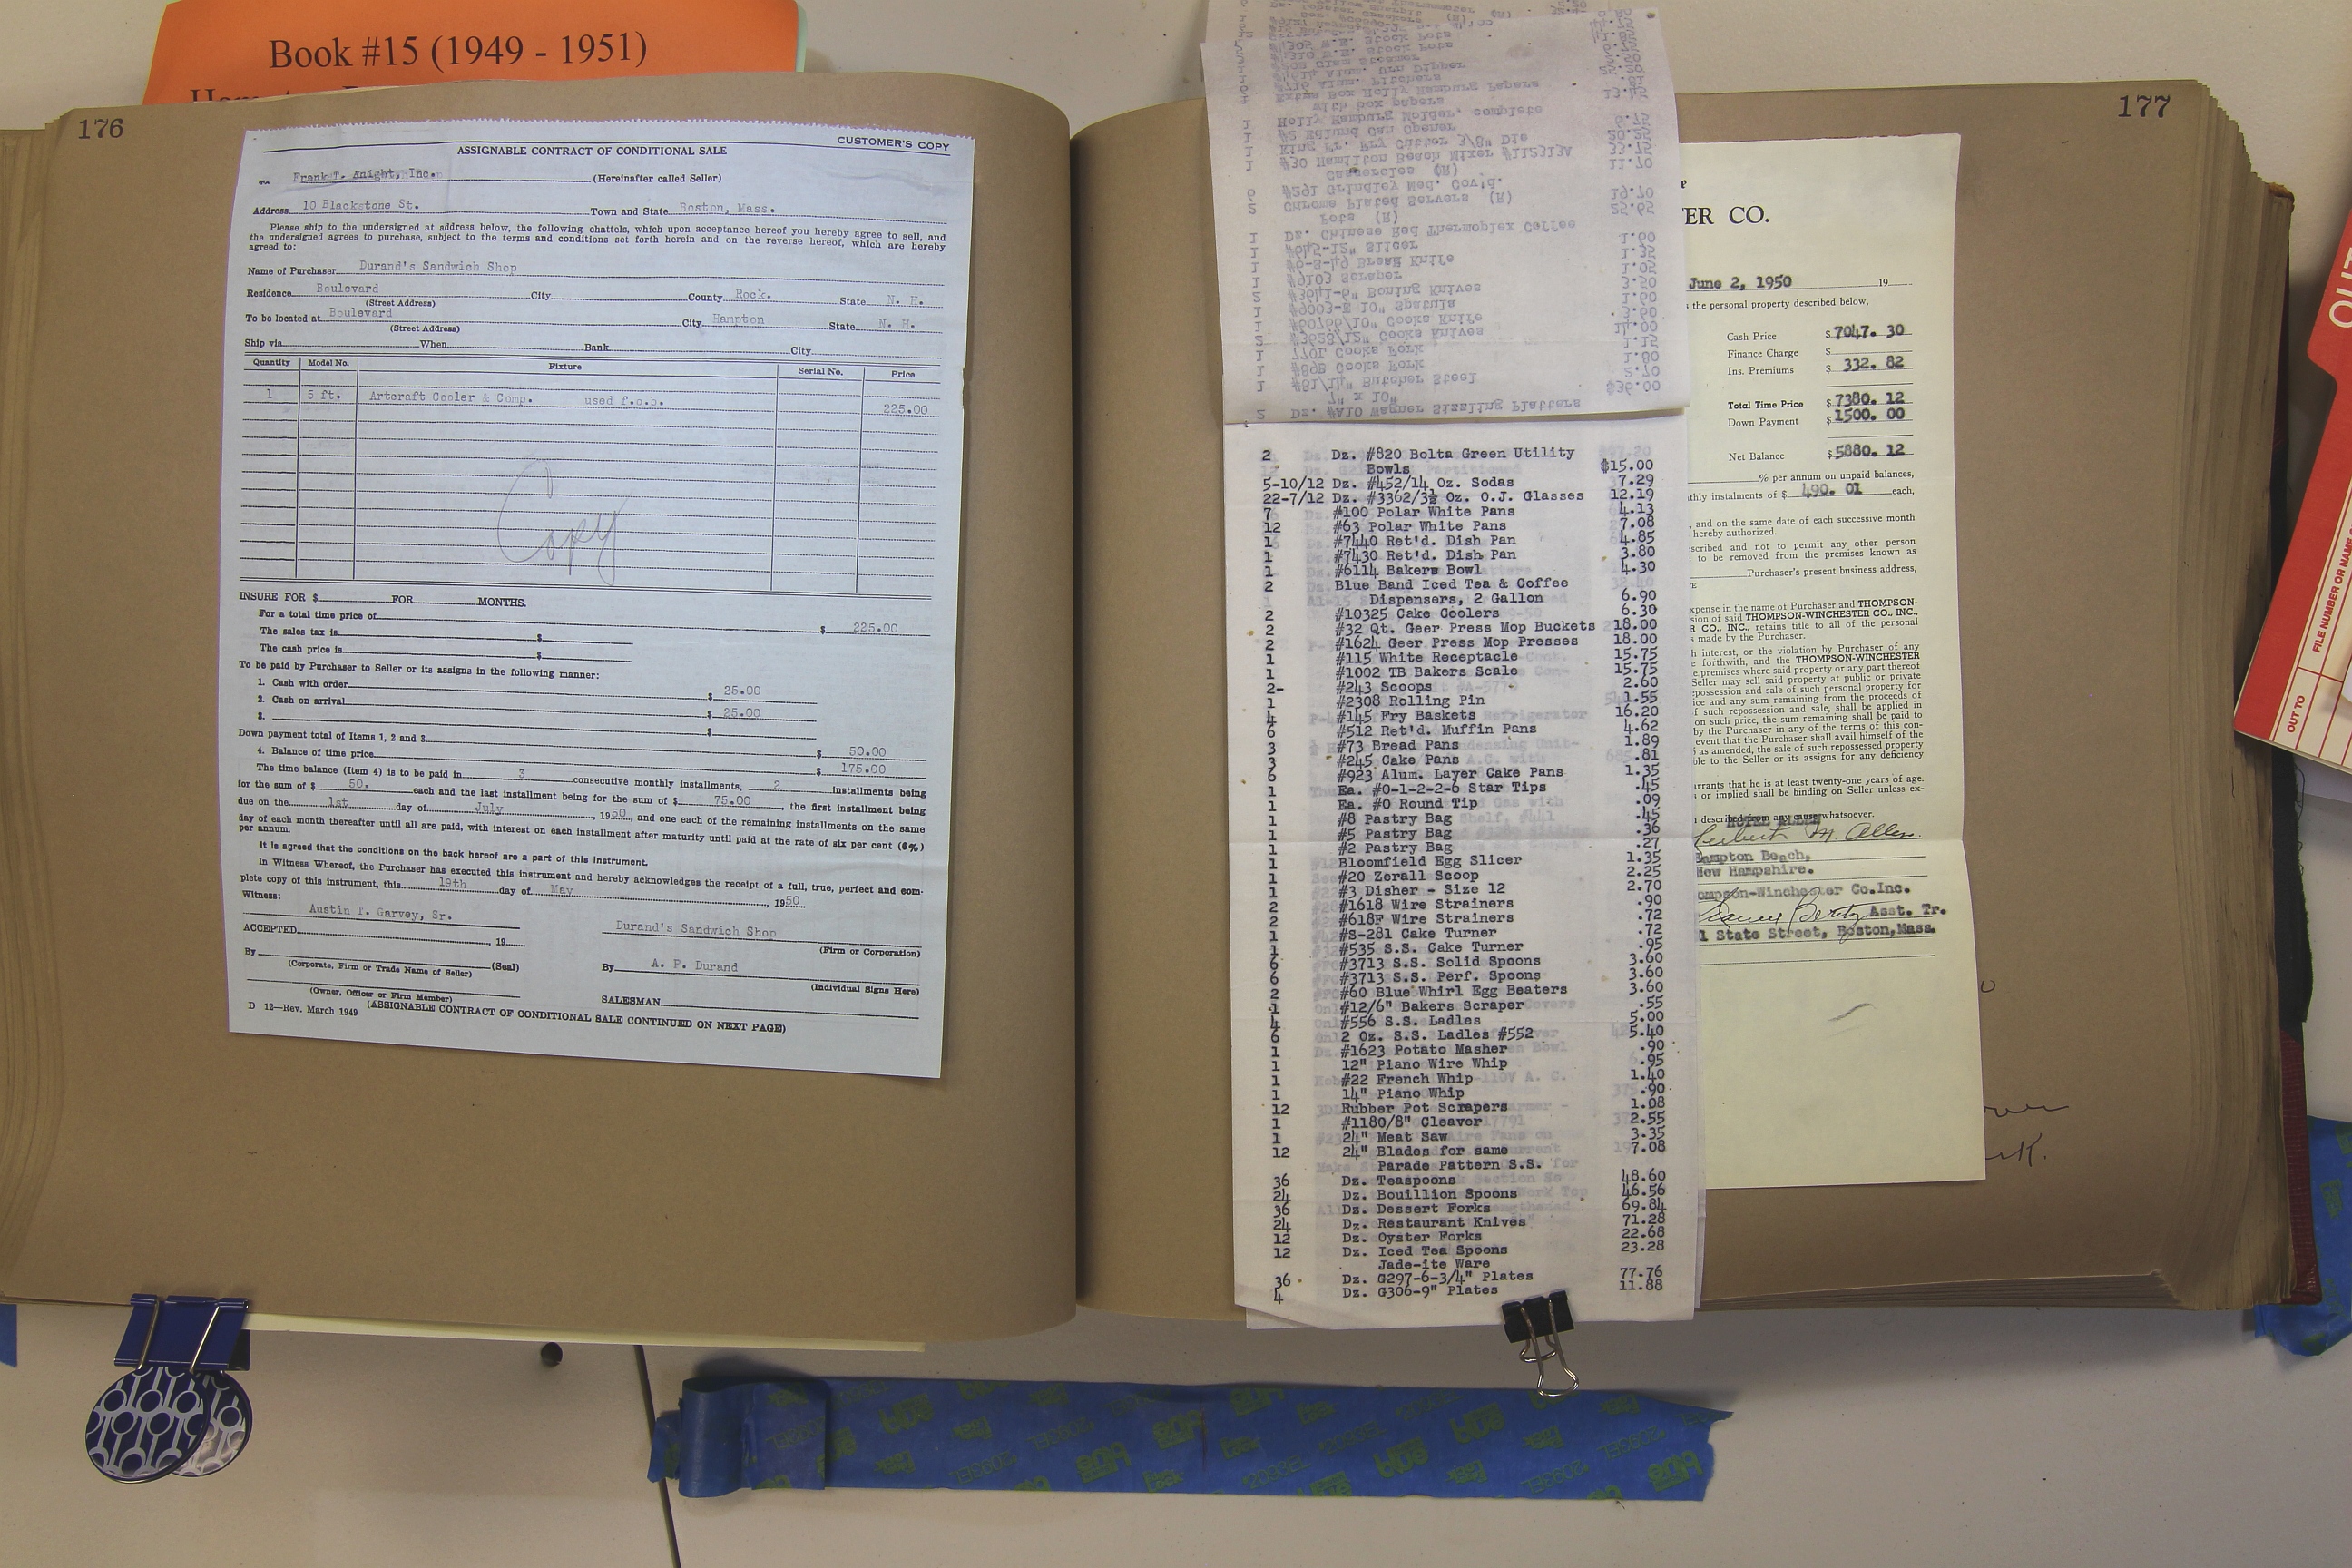 Book #15 (1949 - 1951)
176
CUSTOMER'S COPY
ASSIGNABLE CONTRACT OF CONDITIONAL SALE
To Frank T. Knight, Inc. (Hereinafter called Seller)
Address 10 Blackstone St. Town and State Boston, Mass.
Please ship to the undersigned at address below, the following chattels, which upon acceptance hereof you hereby agree to sell, and
the undersigned agrees to purchase, subject to the terms and conditions set forth herein and on the reverse hereof, which are hereby
agreed to:
Name of Purchaser Durand's Sandwich Shop
Residence Boulevard City County Rock. State N. H.
(Street Address)
To be located at Boulevard City Hampton State N. H.
(Street Address)
Ship via When Bank City
Quantity Model No. Fixture Serial No. Price
1 5 ft. Artcraft Cooler & Comp. used f.o.b. 225.00
Copy
INSURE FOR $ FOR MONTHS.
For a total time price of $ 225.00
The sales tax is $
The cash price is $
To be paid by Purchaser to Seller or its assigns in the following manner:
1. Cash with order $ 25.00
2. Cash on arrival $ 25.00
3. $
Down payment total of Items 1, 2 and 3 $ 50.00
4. Balance of time price $ 175.00
The time balance (Item 4) is to be paid in 3 consecutive monthly installments, 2 installments being
for the sum of $ 50. each and the last installment being for the sum of $ 75.00, the first installment being
due on the 1st day of July, 1950, and one each of the remaining installments on the same
day of each month thereafter until all are paid, with interest on each installment after maturity until paid at the rate of six per cent (6%)
per annum.
It is agreed that the conditions on the back hereof are a part of this instrument.
In Witness Whereof, the Purchaser has executed this instrument and hereby acknowledges the receipt of a full, true, perfect and com-
plete copy of this instrument, this 19th day of May, 1950
Witness:
Austin T. Garvey, Sr.
Durand's Sandwich Shop
ACCEPTED, 19
(Firm or Corporation)
By (Seal)
By A. P. Durand
(Corporate, Firm or Trade Name of Seller)
(Individual Signs Here)
(Owner, Officer or Firm Member)
SALESMAN
D 12—Rev. March 1949 (ASSIGNABLE CONTRACT OF CONDITIONAL SALE CONTINUED ON NEXT PAGE)
177
#305 W.E. Stock Pots
Stock Pots
Clam Steamer
Alum. Urn Dipper
#716 Alum. Pitchers
Extra Box Holly Hamburg Papers
with box papers
1 Holly Hamburg Molder, complete
1 #2 Edlund Can Opener 6.75
1 King Fr. Fry Cutter 3/8" Die 20.25
1 #30 Hamilton Beach Mixer #112313A 33.75
Casseroles (R) 11.70
6 #291 Grindley Med. Cov'd.
2 Chrome Plated Servers (R) 19.70
Pots (R) 25.65
1 Dz. Chinese Red Thermoplex Coffee
1 #645-12" Slicer 1.60
1 #6-8-49 Bread Knife 1.35
1 #9103 Scraper 1.05
2 #3641-6" Boning Knives 3.50
1 #9003-E 10" Spatula 1.60
1 #60766/10" Cooks Knife 3.60
2 #3628/12" Cooks Knives 14.00
1 770L Cooks Fork 1.15
1 #89E Cooks Fork 1.80
1 #81/14" Butcher Steel 2.70
7" x 10" $36.00
2 Dz. #A10 Wagner Sizzling Platters
2 Dz. #820 Bolta Green Utility
Bowls $15.00
5-10/12 Dz. #452/14 Oz. Sodas 7.29
22-7/12 Dz. #3362/3½ Oz. O.J. Glasses 12.19
7 #100 Polar White Pans 4.13
12 #63 Polar White Pans 7.08
1 #7440 Ret'd. Dish Pan 4.85
1 #7430 Ret'd. Dish Pan 3.80
1 #6114 Bakers Bowl 4.30
2 Blue Band Iced Tea & Coffee
Dispensers, 2 Gallon 6.90
2 #10325 Cake Coolers 6.30
2 #32 Qt. Geer Press Mop Buckets 18.00
2 #1624 Geer Press Mop Presses 18.00
1 #115 White Receptacle 15.75
1 #1002 TB Bakers Scale 15.75
2- #243 Scoops 2.60
1 #2308 Rolling Pin 1.55
4 #145 Fry Baskets 16.20
6 #512 Ret'd. Muffin Pans 4.62
3 #73 Bread Pans 1.89
3 #245 Cake Pans .81
6 #923 Alum. Layer Cake Pans 1.35
1 Ea. #0-1-2-2-6 Star Tips .45
1 Ea. #0 Round Tip .09
1 #8 Pastry Bag .45
1 #5 Pastry Bag .36
1 #2 Pastry Bag .27
1 Bloomfield Egg Slicer 1.35
1 #20 Zerall Scoop 2.25
1 #3 Disher - Size 12 2.70
2 #1618 Wire Strainers .90
2 #618F Wire Strainers .72
1 #S-281 Cake Turner .72
1 #535 S.S. Cake Turner .95
6 #3713 S.S. Solid Spoons 3.60
6 #3713 S.S. Perf. Spoons 3.60
2 #60 Blue Whirl Egg Beaters 3.60
1 #12/6" Bakers Scraper .55
4 #556 S.S. Ladles 5.00
6 2 Oz. S.S. Ladles #552 5.40
1 #1623 Potato Masher .90
1 12" Piano Wire Whip .95
1 #22 French Whip 1.40
1 14" Piano Whip .90
12 Rubber Pot Scrapers 1.08
1 #1180/8" Cleaver 2.55
1 24" Meat Saw 3.35
12 24" Blades for same 7.08
Parade Pattern S.S.
36 Dz. Teaspoons 48.60
24 Dz. Bouillion Spoons 46.56
36 Dz. Dessert Forks 69.84
24 Dz. Restaurant Knives 71.28
12 Dz. Oyster Forks 22.68
12 Dz. Iced Tea Spoons 23.28
Jade-ite Ware
36 Dz. G297-6-3/4" Plates 77.76
4 Dz. G306-9" Plates 11.88
ER CO.
June 2, 1950 19
s the personal property described below,
Cash Price $7047. 30
Finance Charge $
Ins. Premiums $ 332. 82
Total Time Price $7380. 12
Down Payment $1500. 00
Net Balance $5880. 12
% per annum on unpaid balances,
thly instalments of $ 490. 01 each,
, and on the same date of each successive month
hereby authorized.
scribed and not to permit any other person
to be removed from the premises known as
Purchaser's present business address,
xpense in the name of Purchaser and THOMPSON-
sion of said THOMPSON-WINCHESTER CO., INC.,
R CO., INC., retains title to all of the personal
s made by the Purchaser.
h interest, or the violation by Purchaser of any
e forthwith, and the THOMPSON-WINCHESTER
e premises where said property or any part thereof
Seller may sell said property at public or private
possession and sale of such personal property for
ice and any sum remaining from the proceeds of
f such repossession and sale, shall be applied in
on such price, the sum remaining shall be paid to
by the Purchaser in any of the terms of this con-
event that the Purchaser shall avail himself of the
as amended, the sale of such repossessed property
ble to the Seller or its assigns for any deficiency
arrants that he is at least twenty-one years of age.
s or implied shall be binding on Seller unless ex-
n described from any cause whatsoever.
HOTEL ALLEN
Herbert M. Allen
Hampton Beach,
New Hampshire.
ompson-Winchester Co.Inc.
Asst. Tr.
1 State Street, Boston, Mass.
OUT
FILE NUMBER OR NAME
OUT TO